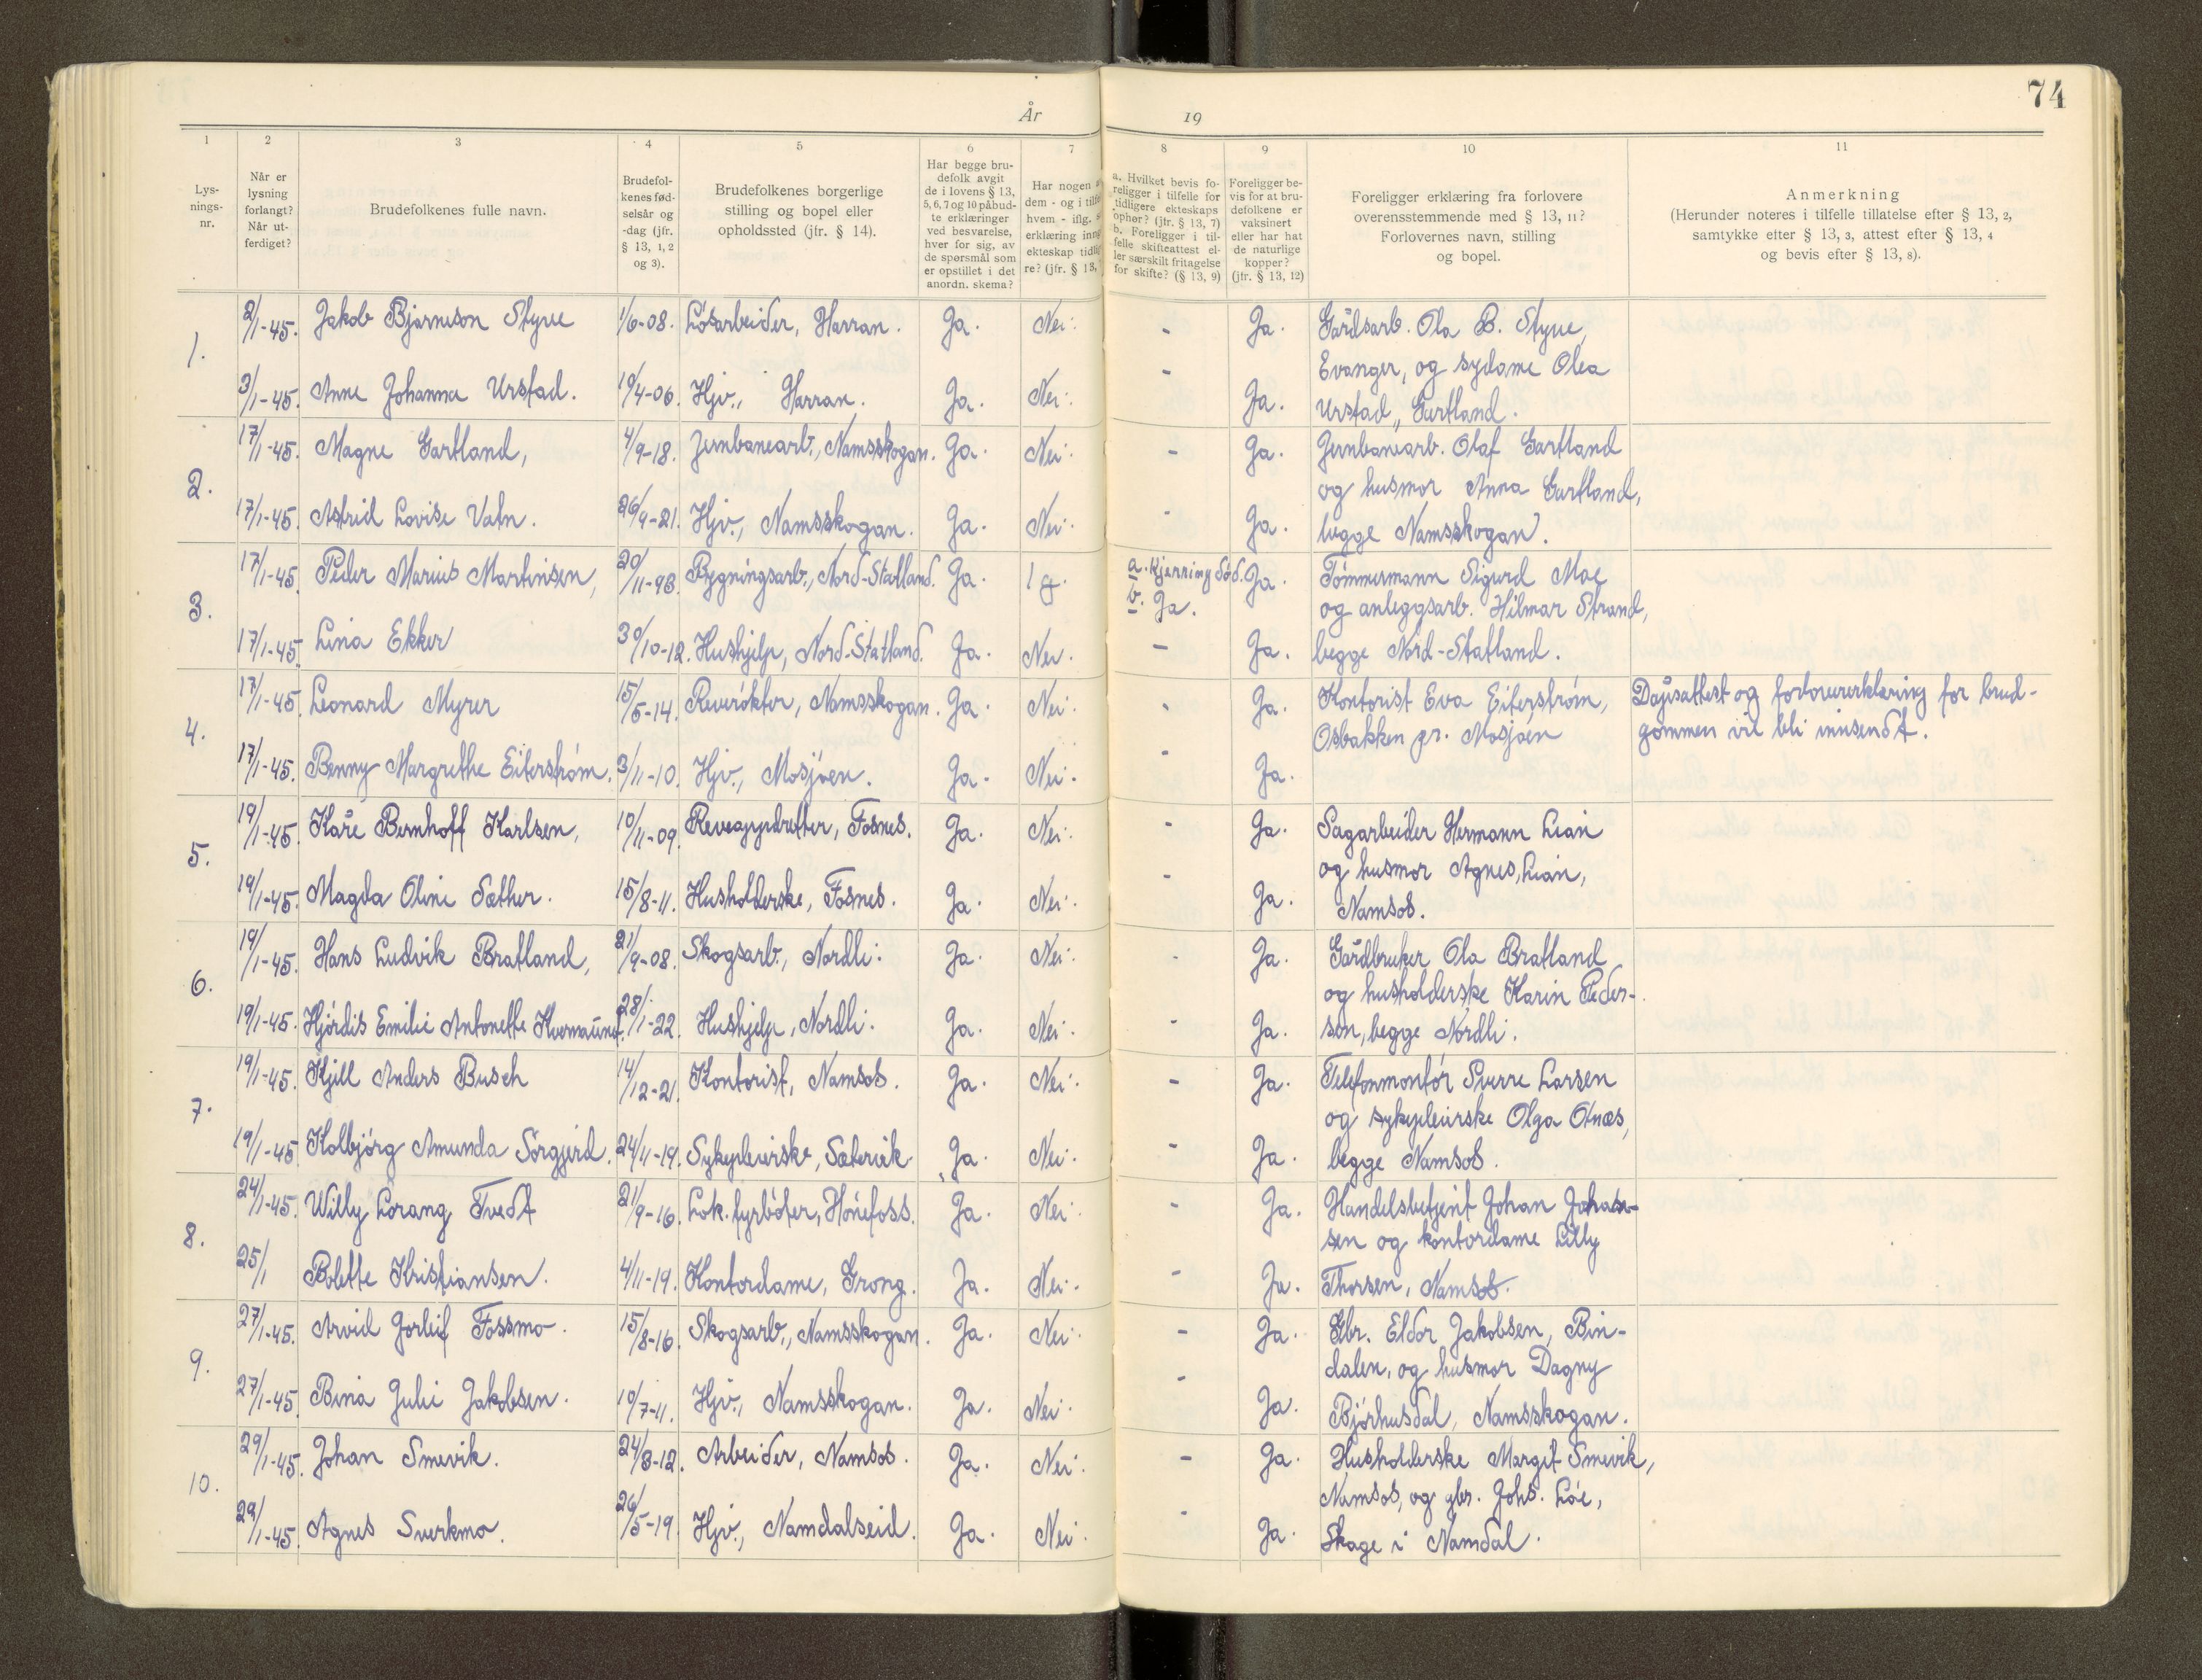 74
År 19
1 2 3 4 5 6 7 8 9 10 11
Lys-
nings-
nr.
Når er
lysning
forlangt?
Når ut-
ferdiget?
Brudefolkenes fulle navn.
Brudefol-
kenes fød-
selsår og
-dag (jfr.
§ 13, 1, 2
og 3).
Brudefolkenes borgerlige
stilling og bopel eller
opholdssted (jfr. § 14).
Har begge bru-
defolk avgit
de i lovens § 13,
5, 6, 7 og 10 påbud-
te erklæringer
ved besvarelse,
hver for sig, av
de spørsmål som
er opstillet i det
anordn. skema?
Har nogen
dem - og i tilfe
hvem - iflg.
erklæring inng
ekteskap tidlig
re? (jfr. § 13,
a. Hvilket bevis fo-
religger i tilfelle for
tidligere ekteskaps
ophør? (jfr. § 13, 7)
b. Foreligger i til-
felle skifteattest el-
ler særskilt fritagelse
for skifte? (§ 13, 9)
Foreligger be-
vis for at bru-
defolkene er
vaksinert
eller har hat
de naturlige
kopper?
(jfr. § 13, 12)
Foreligger erklæring fra forlovere
overensstemmende med § 13, 11?
Forlovernes navn, stilling
og bopel.
Anmerkning
(Herunder noteres i tilfelle tillatelse efter § 13, 2,
samtykke efter § 13, 3, attest efter § 13, 4
og bevis efter § 13, 8).
1.
2/1-45. Jakob Bjarneson Styve 1/6-08. Løsarbeider, Harran. Ja. Nei. - Ja. Gårdsarb. Ola B. Styve,
Evanger, og sydame Olea
3/1-45. Anne Johanna Urstad. 19/4-06. Hjv., Harran. Ja. Nei. - Ja. Urstad, Gartland.
2.
17/1-45. Magne Gartland, 4/9-18. Jernbanearb., Namsskogan. Ja. Nei. - Ja. Jernbanearb. Olaf Gartland
og husmor Anna Gartland,
17/1-45. Astrid Lovise Vatn. 26/9-21. Hjv., Namsskogan. Ja. Nei. - Ja. begge Namsskogan.
3.
17/1-45. Peder Marius Martinsen, 20/11-93. Bygningsarb., Nord-Statland. Ja. 1 g. a. kjerring død. Ja. Tømmermann Sigurd Moe
b. Ja. og anleggsarb. Hilmar Strand,
17/1-45. Lina Ekker 30/10-12. Hushjelp, Nord-Statland. Ja. Nei. - Ja. begge Nord-Statland.
4.
17/1-45. Leonard Myrer 15/5-14. Reverøkter, Namsskogan. Ja. Nei. - Ja. Kontorist Eva Eiterstrøm, Dåpsattest og forlovererklæring for brud-
Osbakken pr. Mosjøen gommen vil bli innsendt.
17/1-45. Benny Margrethe Eiterstrøm. 3/11-10. Hjv., Mosjøen. Ja. Nei. - Ja.
5.
19/1-45. Kåre Bernhoff Karlsen, 10/11-09. Reveoppdretter, Fosnes. Ja. Nei. - Ja. Sagarbeider Hermann Lian
og husmor Agnes Lian,
19/1-45. Magda Oline Sæther. 15/8-11. Husholderske, Fosnes. Ja. Nei. - Ja. Namsos.
6.
19/1-45. Hans Ludvik Bratland, 21/9-08. Skogsarb., Nordli. Ja. Nei. - Ja. Gårdbruker Ola Bratland
og husholderske Karin Peder-
19/1-45. Hjördis Emilie Antonette Kvernaunet. 28/1-22. Hushjelp, Nordli. Ja. Nei. - Ja. sen, begge Nordli.
7.
19/1-45. Kjell Anders Busch 14/12-21. Kontorist, Namsos. Ja. Nei. - Ja. Telefonmontør Sverre Larsen
og sykepleierske Olga Otnæs,
19/1-45 Kolbjörg Amunda Sørgjerd. 24/11-19. Sykepleierske, Sætervik Ja. Nei. - Ja. begge Namsos.
8.
24/1-45. Willy Lorang Tvedt 21/9-16. Lok. fyrbøter, Hønefoss. Ja. Nei. - Ja. Handelsbetjent Johan Johan-
sen og kontordame Lilly
25/1 Bolette Kristiansen. 4/11-19. Kontordame, Grong. Ja. Nei. - Ja. Thorsen, Namsos.
9.
27/1-45. Arvid Gorleif Fossmo. 15/8-16. Skogsarb., Namsskogan. Ja. Nei. - Ja. Gbr. Eldor Jakobsen, Bin-
dalen, og husmor Dagny
27/1-45. Bina Julie Jakobsen. 10/7-11. Hjv., Namsskogan. Ja. Nei. - Ja. Bjørhusdal, Namsskogan.
10.
29/1-45. Johan Smevik. 24/3-12. Arbeider, Namsos. Ja. Nei. - Ja. Husholderske Margit Smevik,
Namsos, og gbr. Johs. Løe,
29/1-45. Agnes Sverkmo. 26/5-19. Hjv., Namdalseid. Ja. Nei. - Ja. Skage i Namdal.